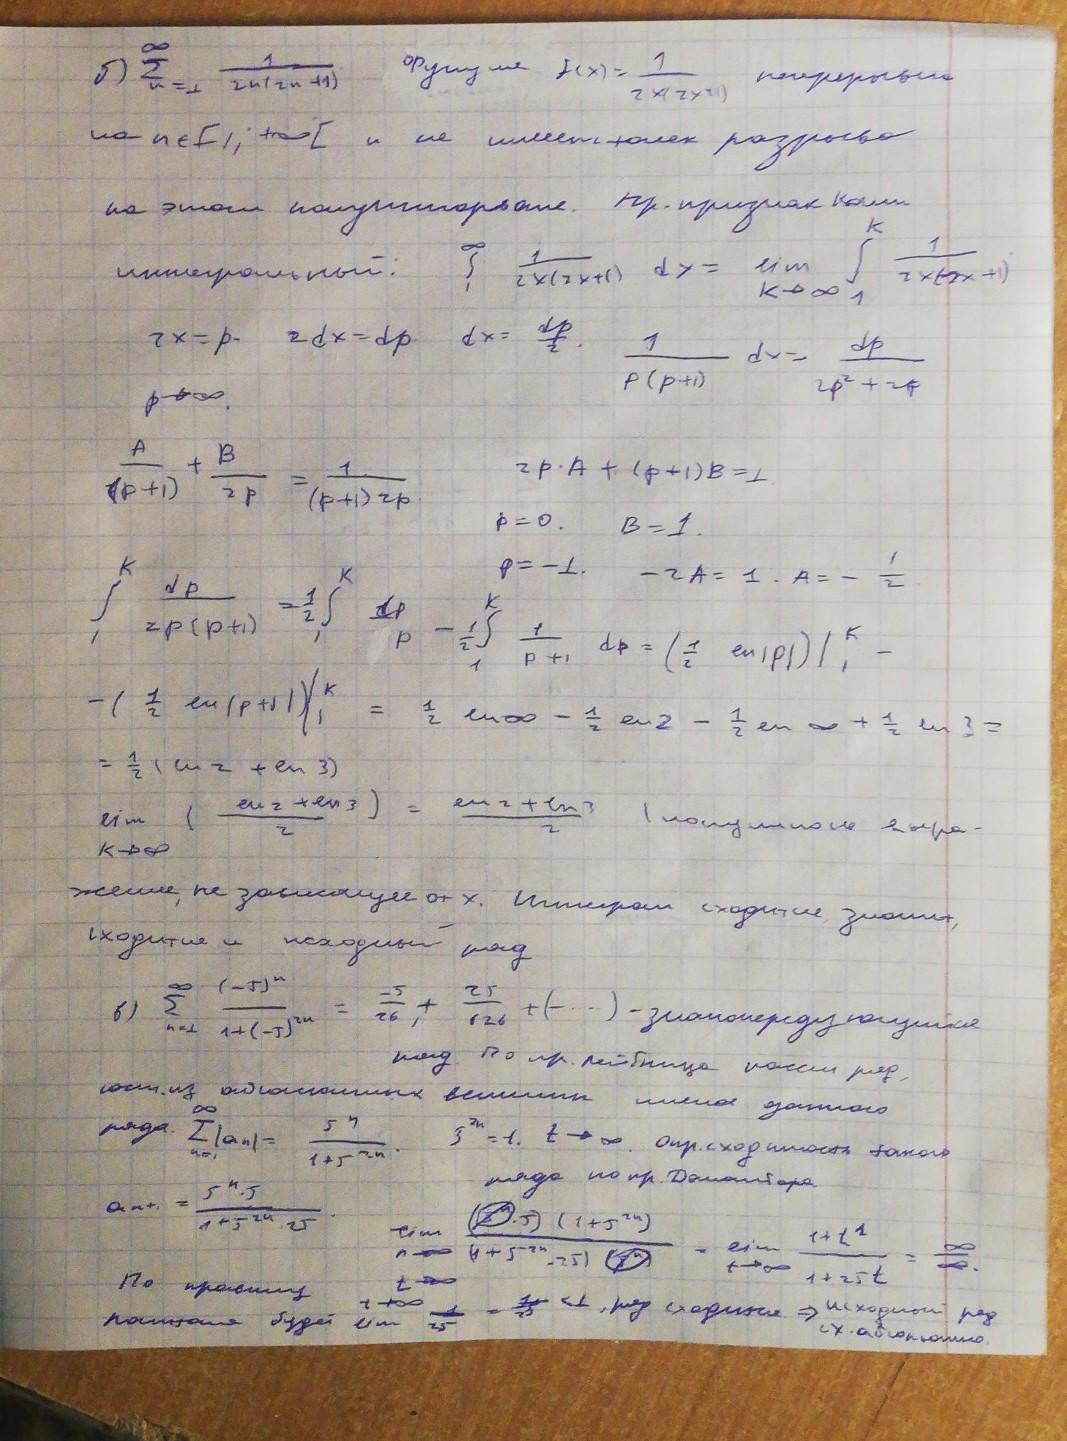 б) ∞ Σ n=1 1/(2n(2n+1)) функция f(x) = 1/(2x(2x+1)) непрерывна
на n∈[1; +∞[ и не имеет точек разрыва
на этом полуинтервале. Пр. признак Коши
интегральный: ∞∫1 1/(2x(2x+1)) dx = lim K→∞ K∫1 1/(2x(2x+1))
2x=p. 2dx=dp dx= dp/2. 1/(p(p+1)) dx= dp/(2p²+2p)
p→∞.
A/(p+1) + B/2p = 1/((p+1)2p) 2p·A + (p+1)B=1
p=0. B=1.
p=-1. -2A=1. A=-1/2
K∫1 dp/(2p(p+1)) = 1/2 K∫1 dp/p - 1/2 K∫1 1/(p+1) dp = (1/2 ln|p|)|K1 -
-(1/2 ln|p+1|)|K1 = 1/2 ln∞ - 1/2 ln2 - 1/2 ln∞ + 1/2 ln3 =
= 1/2(ln2 + ln3)
lim K→∞ ((ln2+ln3)/2) = (ln2+ln3)/2 (получилось выра-
жение, не зависящее от x. Интеграл сходится, значит,
сходится и исходный ряд
в) ∞ Σ n=1 (-5)ⁿ/(1+(-5)²ⁿ) = -5/26 + 25/626 + (-...) - знакочередующийся
ряд. По пр. Лейбница ряд,
сост. из абсолютных величин членов данного
ряда. ∞ Σ n=1 |an| = 5ⁿ/(1+5²ⁿ). 5²ⁿ=t. t→∞. Опр. сходимость такого
ряда по пр. Даламбера
an+1 = 5ⁿ·5/(1+5²ⁿ·25).
lim n→∞ t→∞ (5ⁿ·5)(1+5²ⁿ)/((1+5²ⁿ·25)(5ⁿ)) = lim t→∞ (1+t)/(1+25t) = ∞/∞.
По правилу
Лопиталя будет lim t→∞ 1/25 = 1/25 <1, ряд сходится ⇒ исходный ряд
сх. абсолютно.